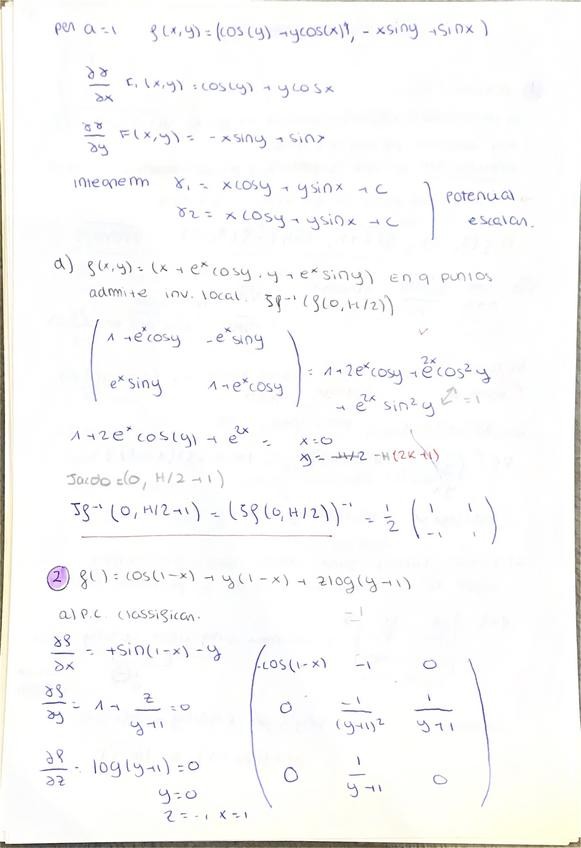 per a=1 f(x,y)=(cos(y)+ycos(x), -xsiny+sinx)
∂γ/∂x F₁(x,y)=cos(y)+ycosx
∂γ/∂y F(x,y)= -xsiny+sinx
γ₁ = xcosy+ysinx+C
γ2= xcosy+ysinx+C
potencial
escalar.
d) f(x,y)=(x+eˣcosy, y+eˣsiny) En q puntos
admite inv. local. Jf⁻¹(f(0,π/2))
1+eˣcosy -eˣsiny
eˣsiny 1+eˣcosy
= 1+2eˣcosy+e²ˣcos²y
+ e²ˣsin²y =1
1+2eˣcos(y)+e²ˣ = x=0
y= -π(2k+1)
=(0, π/2+1)
Jf⁻¹(0,π/2+1) = (Jf(0,π/2))⁻¹ = 1/2 (1 1
-1 1)
2 f()=cos(1-x)+y(1-x)+zlog(y+1)
a) P.C. classifican.
-1
∂f/∂x = +sin(1-x)-y
∂f/∂y = 1+ z/(y+1) =0
∂f/∂z = log(y+1)=0
y=0
z=-1 x=1
-cos(1-x) -1 0
0 -1/(y+1)² 1/(y+1)
0 1/(y+1) 0